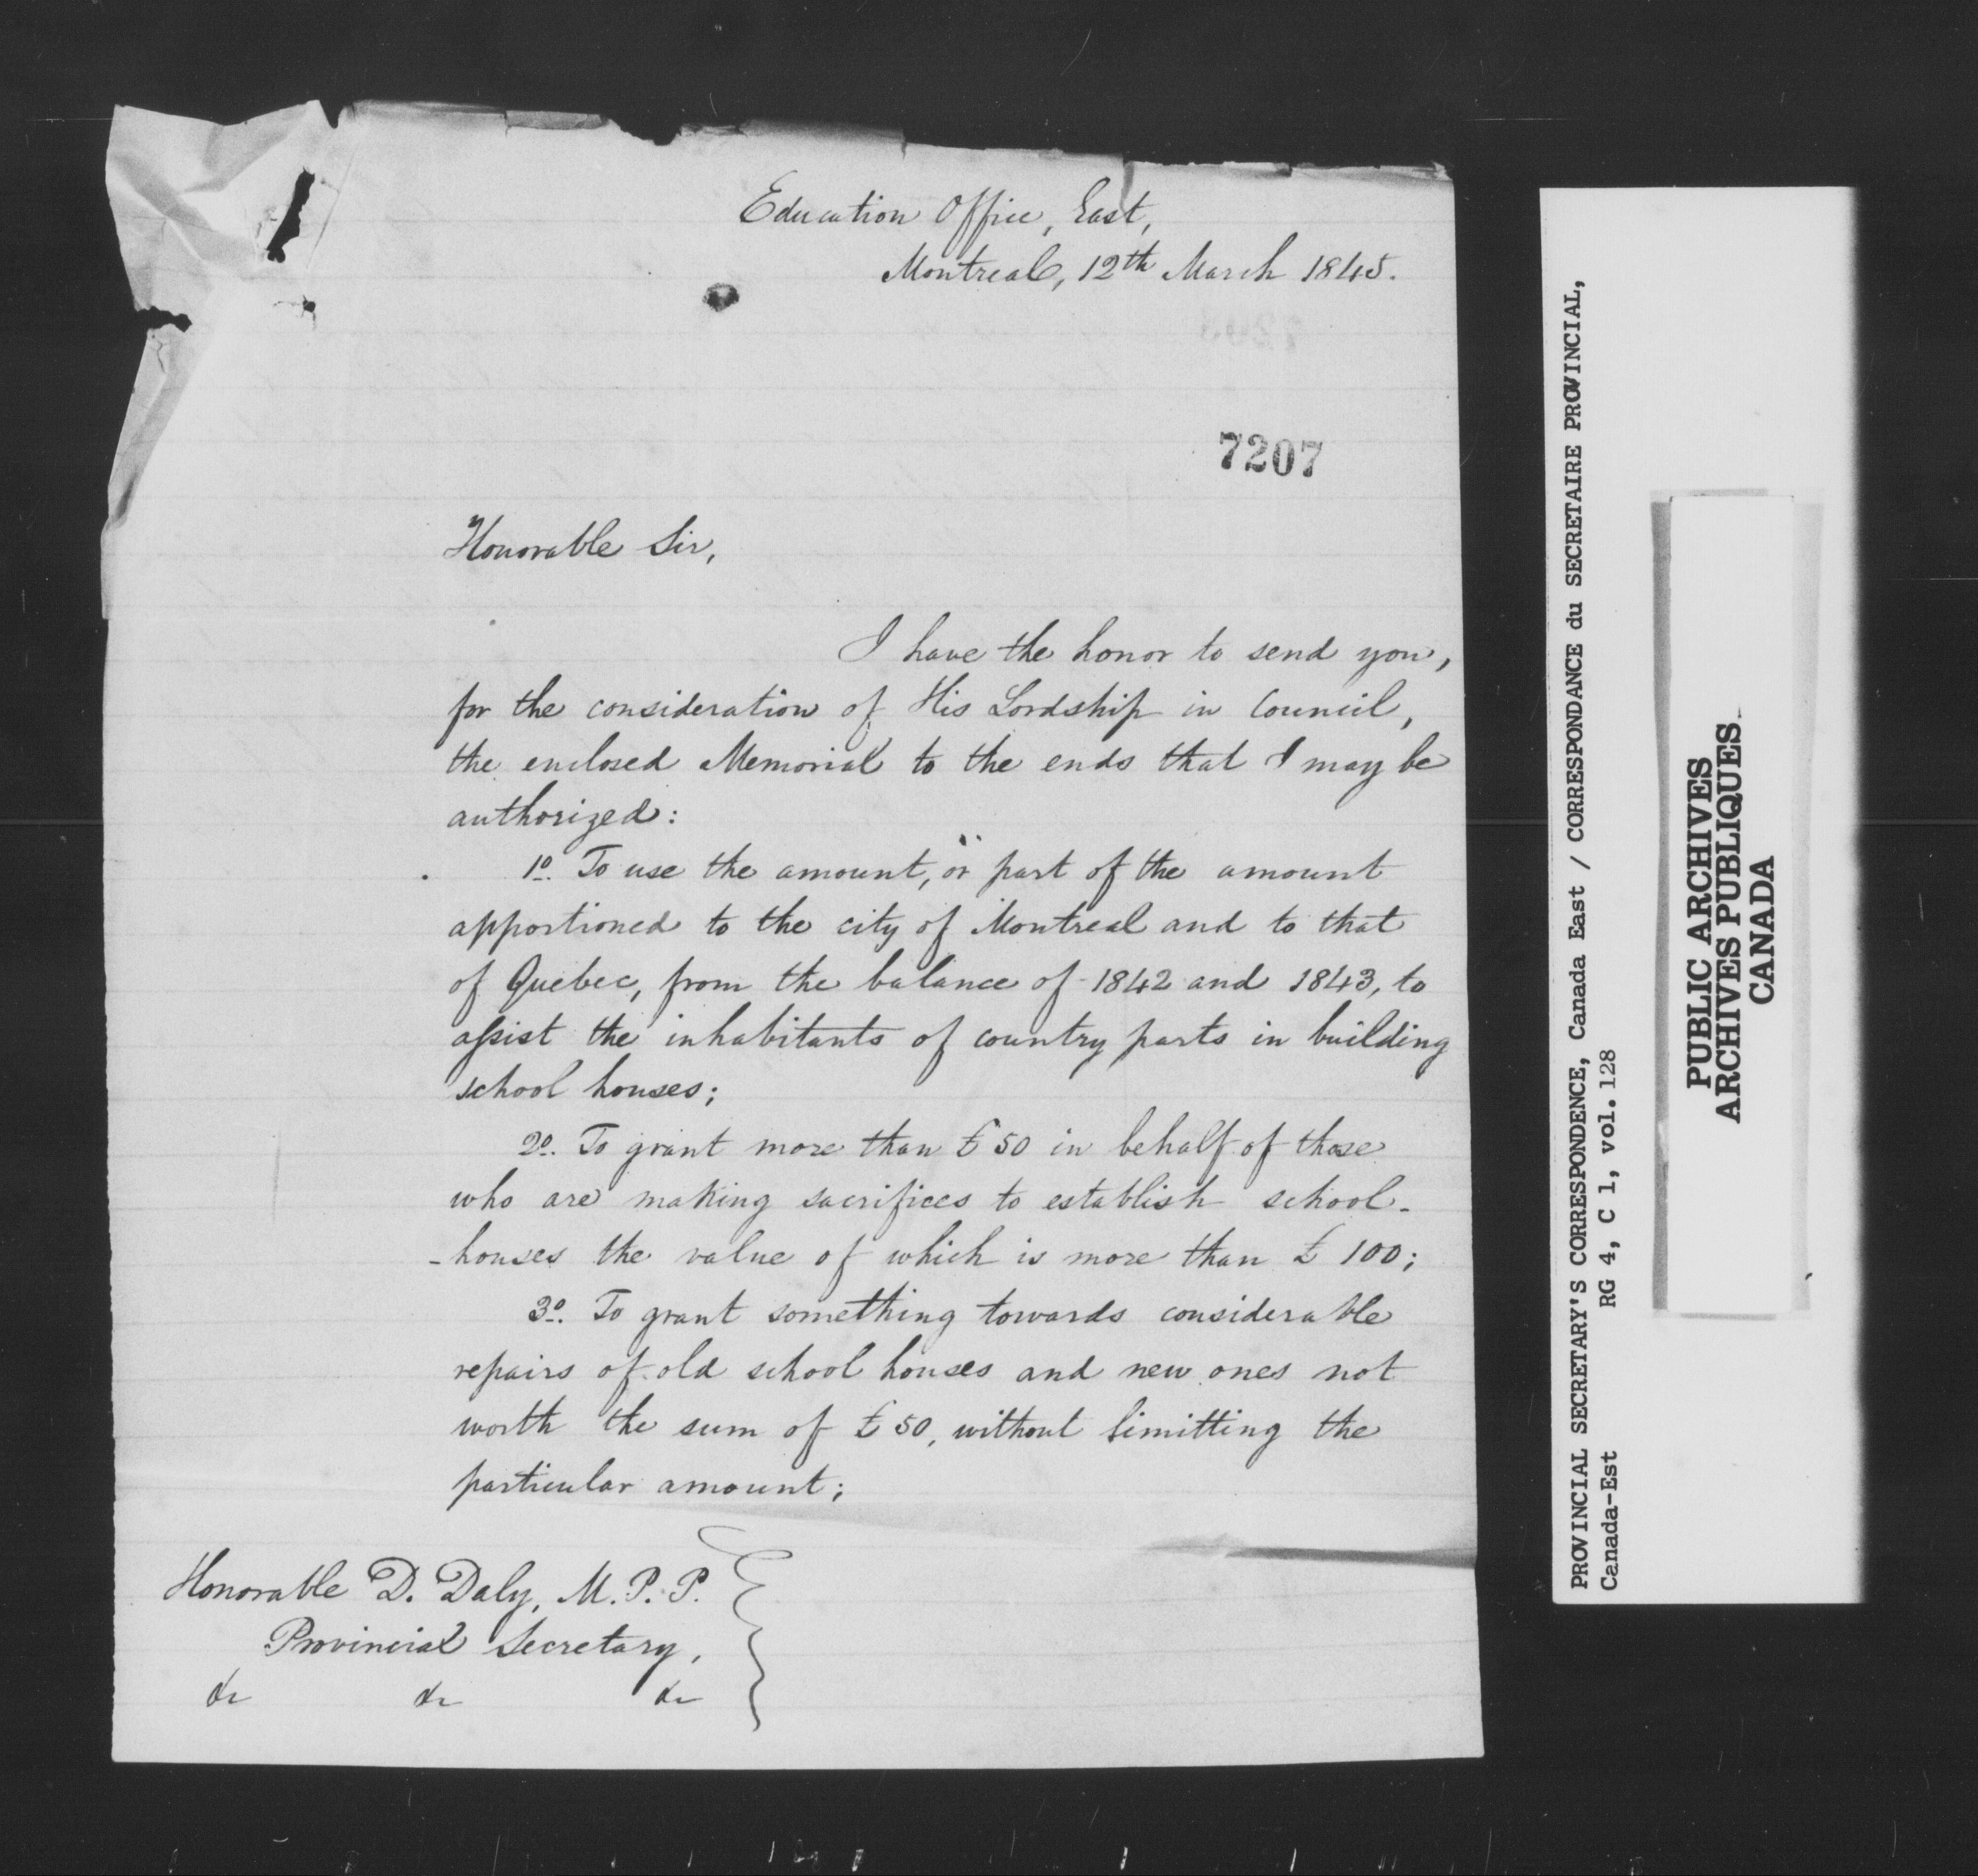 Education Office, East,
Montreal, 12th March 1845.
7207
Honorable Sir,
I have the honor to send you,
for the consideration of His Lordship in Council,
the enclosed Memorial to the ends that I may be
authorized:
1o. To use the amount, or part of the amount
apportioned to the city of Montreal and to that
of Quebec, from the balance of 1842 and 1843, to
assist the inhabitants of country parts in building
school houses;
2o. To grant more than £50 in behalf of those
who are making sacrifices to establish school-
-houses the value of which is more than £ 100;
3o. To grant something towards considerable
repairs of old school houses and new ones not
worth the sum of £50, without limitting the
particular amount;
Honorable D. Daly, M.P.P.
Provincial Secretary,
&c &c &c
PROVINCIAL SECRETARY'S CORRESPONDENCE, Canada East / CORRESPONDANCE du SECRETAIRE PROVINCIAL,
Canada-Est RG 4, C 1, vol. 128
PUBLIC ARCHIVES
ARCHIVES PUBLIQUES
CANADA